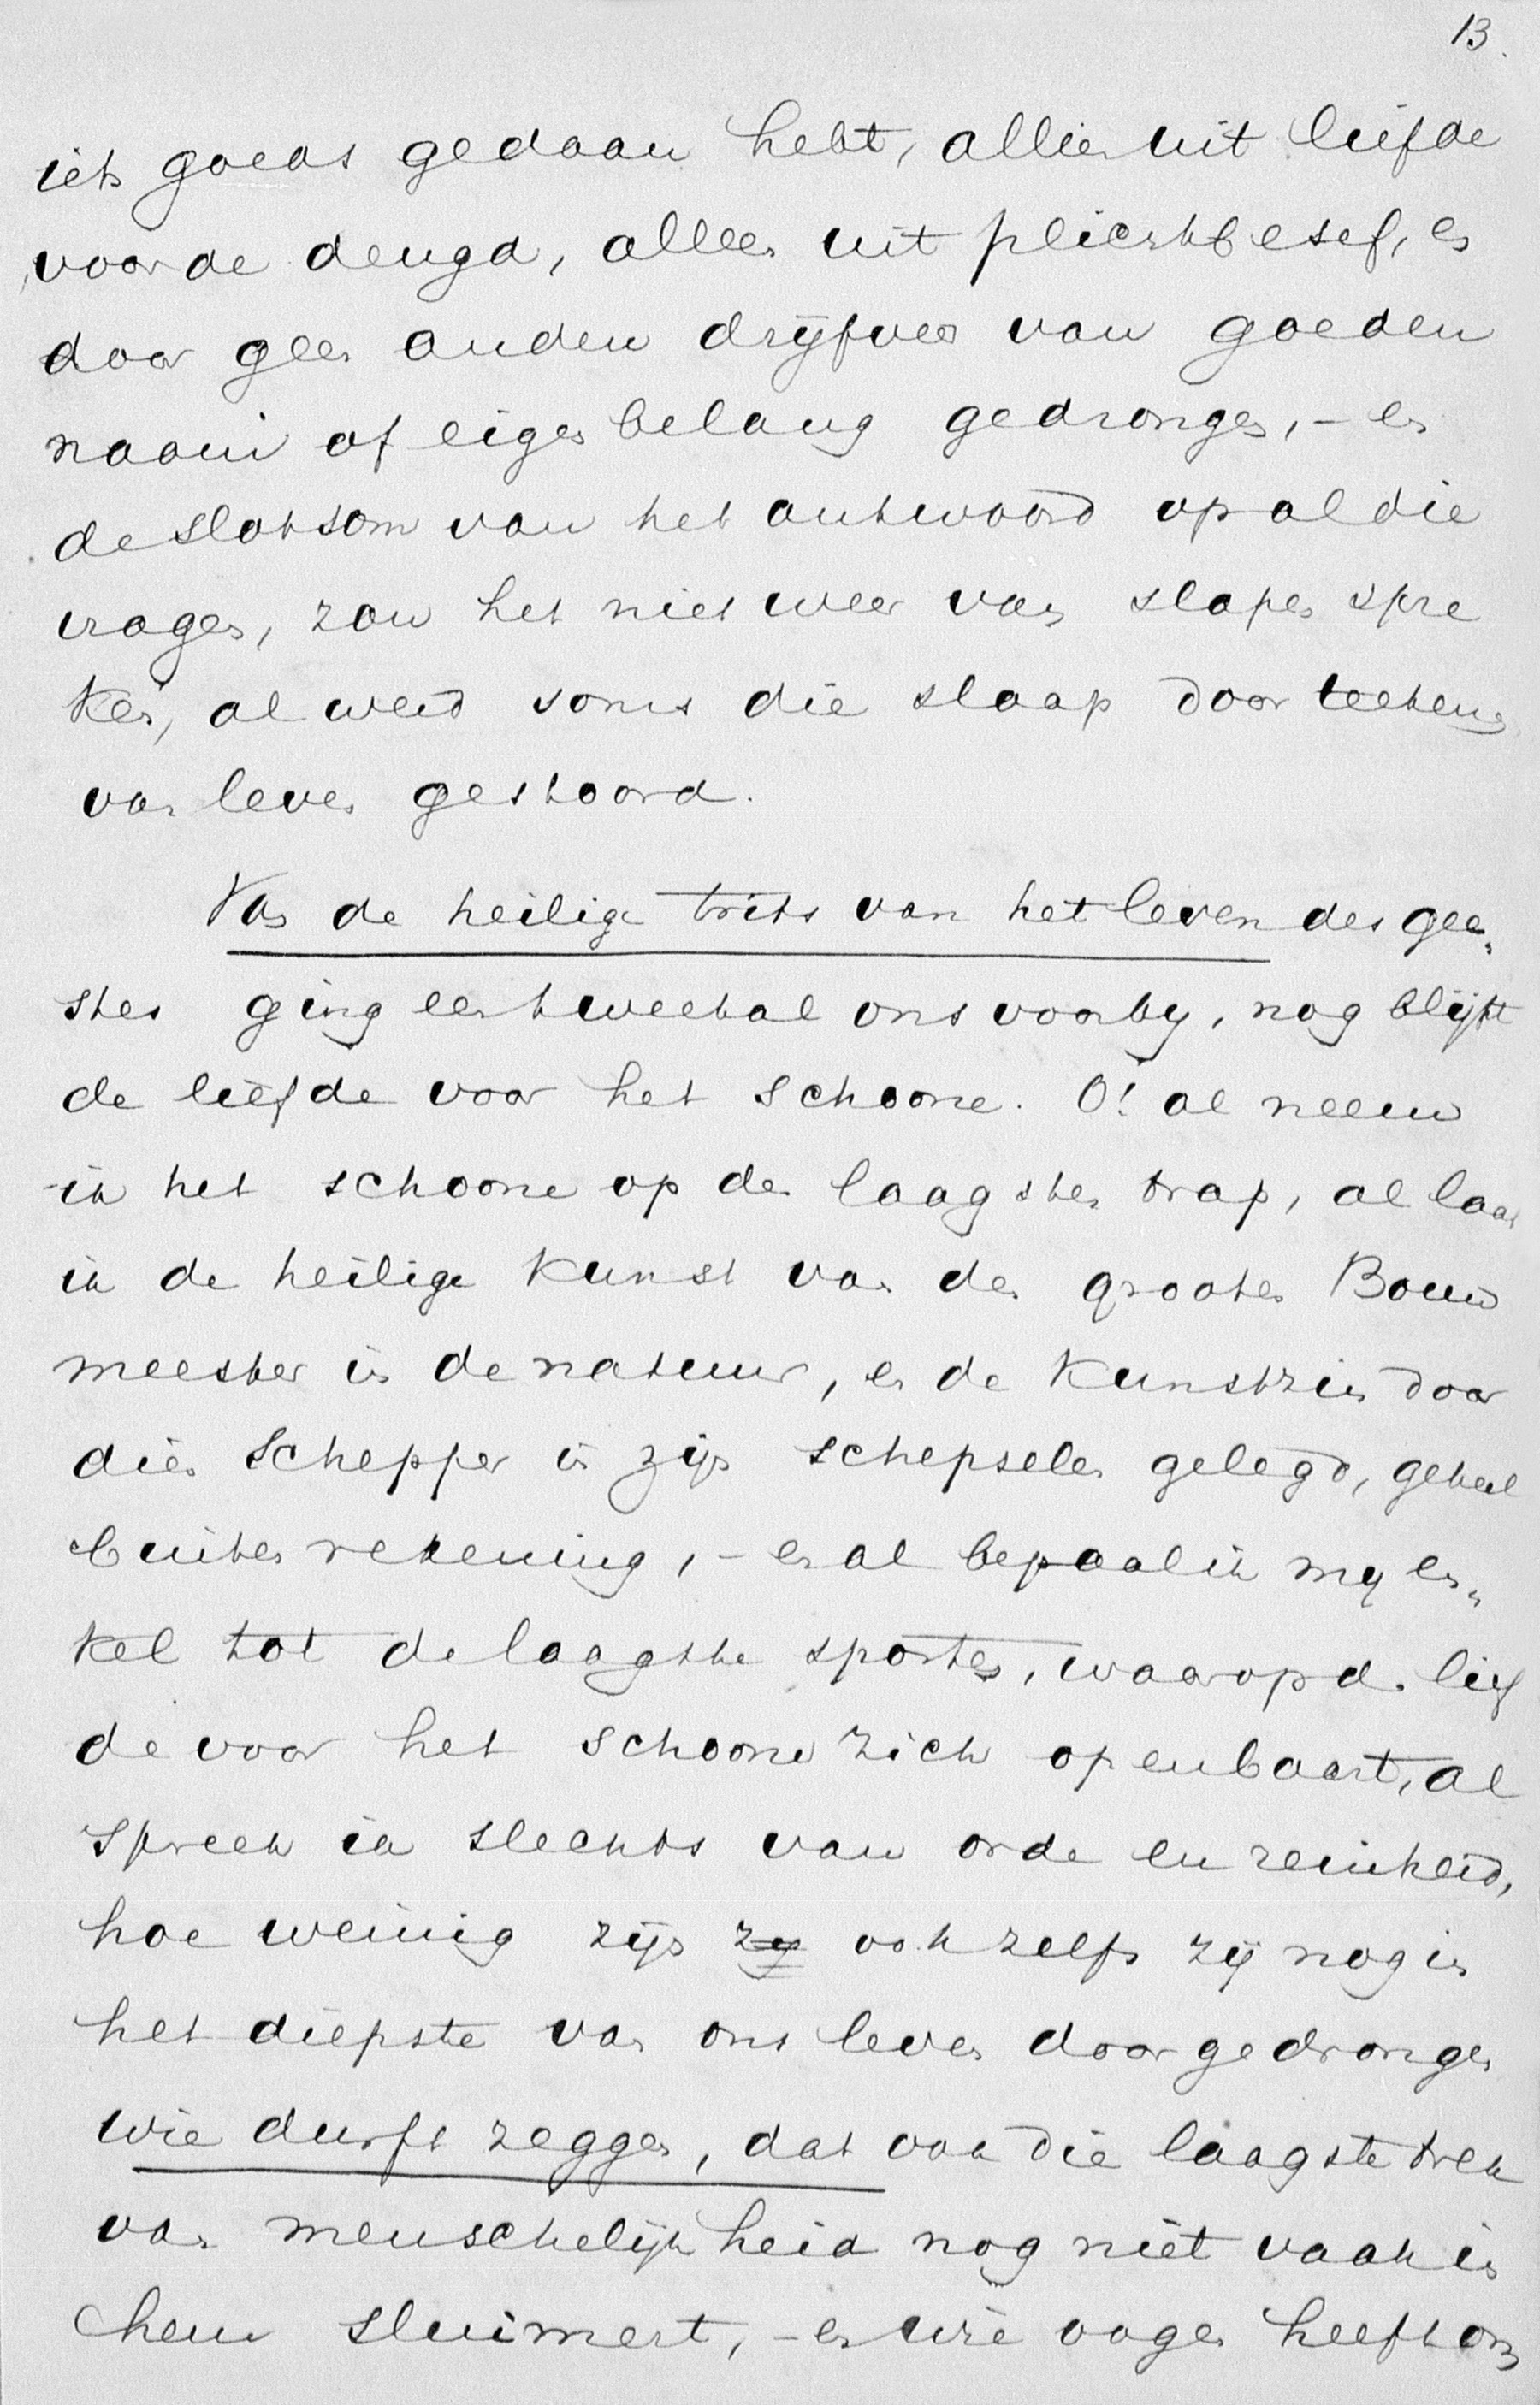 13.
iets goeds gedaan hebt, alleen uit liefde
voor de deugd, alleen uit plichtbesef, en
door geen anderen drijfveer van goeden
naam of eigenbelang gedrongen, – en
de slotsom van het antwoord op al die
vragen, zou het niet weer van slapen spre
ken, al werd soms die slaap door teekens
van leven gestoord.
Van de heilige trits van het leven des gee„
stes ging een tweetal ons voorby, nog blijft
de liefde voor het schoone. O! al neem
ik het schoone op den laagsten trap, al laat
ik de heilige kunst van den grooten Bouw
meester in de natuur, en de kunstzin door
dien Schepper in zijn schepselen gelegd, geheel
buiten rekening, – en al bepaal ik my en„
kel tot de laagste sporten, waarop de lief
de voor het schoone zich openbaart, al
spreek ik slechts van orde en reinheid,
hoe weinig zijn zy ook zelfs zij nog in
het diepste van ons leven doorgedrongen
wie durft zeggen, dat ook die laagste trek
van menschelijkheid nog niet vaak in
hem sluimert, – en wie oogen heeft om